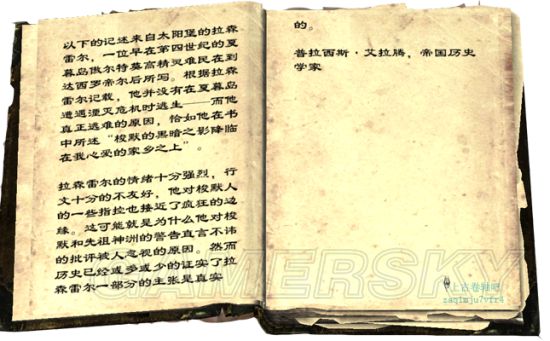 以下的记述来自太阳堡的拉森
雷尔，一位早在第四世纪的夏
暮岛傲尔特莫高精灵难民在到
达西罗帝尔后所写。根据拉森
雷尔记载，他并没有在夏暮岛
遭遇湮灭危机时逃生——而他
真正逃难的原因，恰如他在书
中所述“梭默的黑暗之影降临
在我心爱的家乡之上”。
拉森雷尔的情绪十分强烈，行
文十分的不友好，他对梭默人
的一些指控也接近了疯狂的边
缘。这可能就是为什么他对梭
默和先祖神洲的警告直言不讳
的批评被人忽视的原因。然而
历史已经或多或少的证实了拉
森雷尔一部分的主张是真实
的。
普拉西斯·艾拉腾，帝国历史
学家
GAMERSKY
上古卷轴吧
zaqimju7vfr4